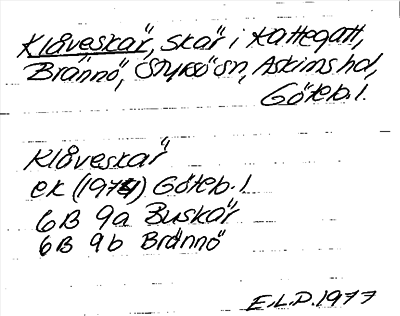 Klåveskär, Skär i Kattegatt,
Brännö, Styrsö sn, Askims hd,
Göteb. l.
Klåveskär
ek (1974) Göteb. l
6B 9a Buskär
6B 9b Brännö
E.L.D. 1977